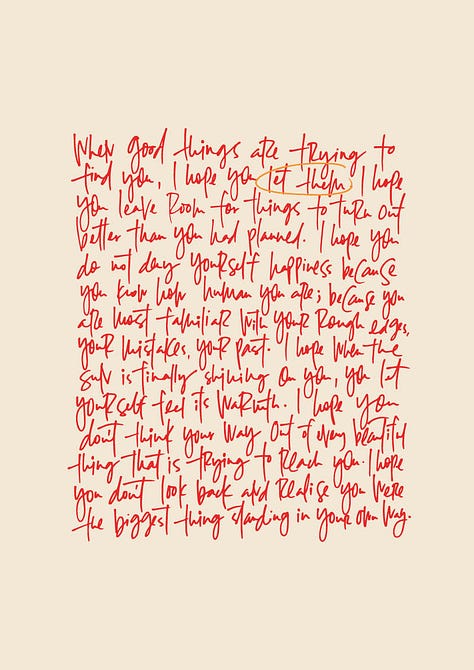 When good things are trying to
find you, I hope you let them I hope
you leave room for things to turn out
better than you had planned. I hope you
do not deny yourself happiness because
you know how human you are; because you
are most familiar with your rough edges,
your mistakes, your past. I hope when the
sun is finally shining on you, you let
yourself feel its warmth. I hope you
don't think your way out of every beautiful
thing that is trying to reach you. I hope
you don't look back and realise you were
the biggest thing standing in your own way.